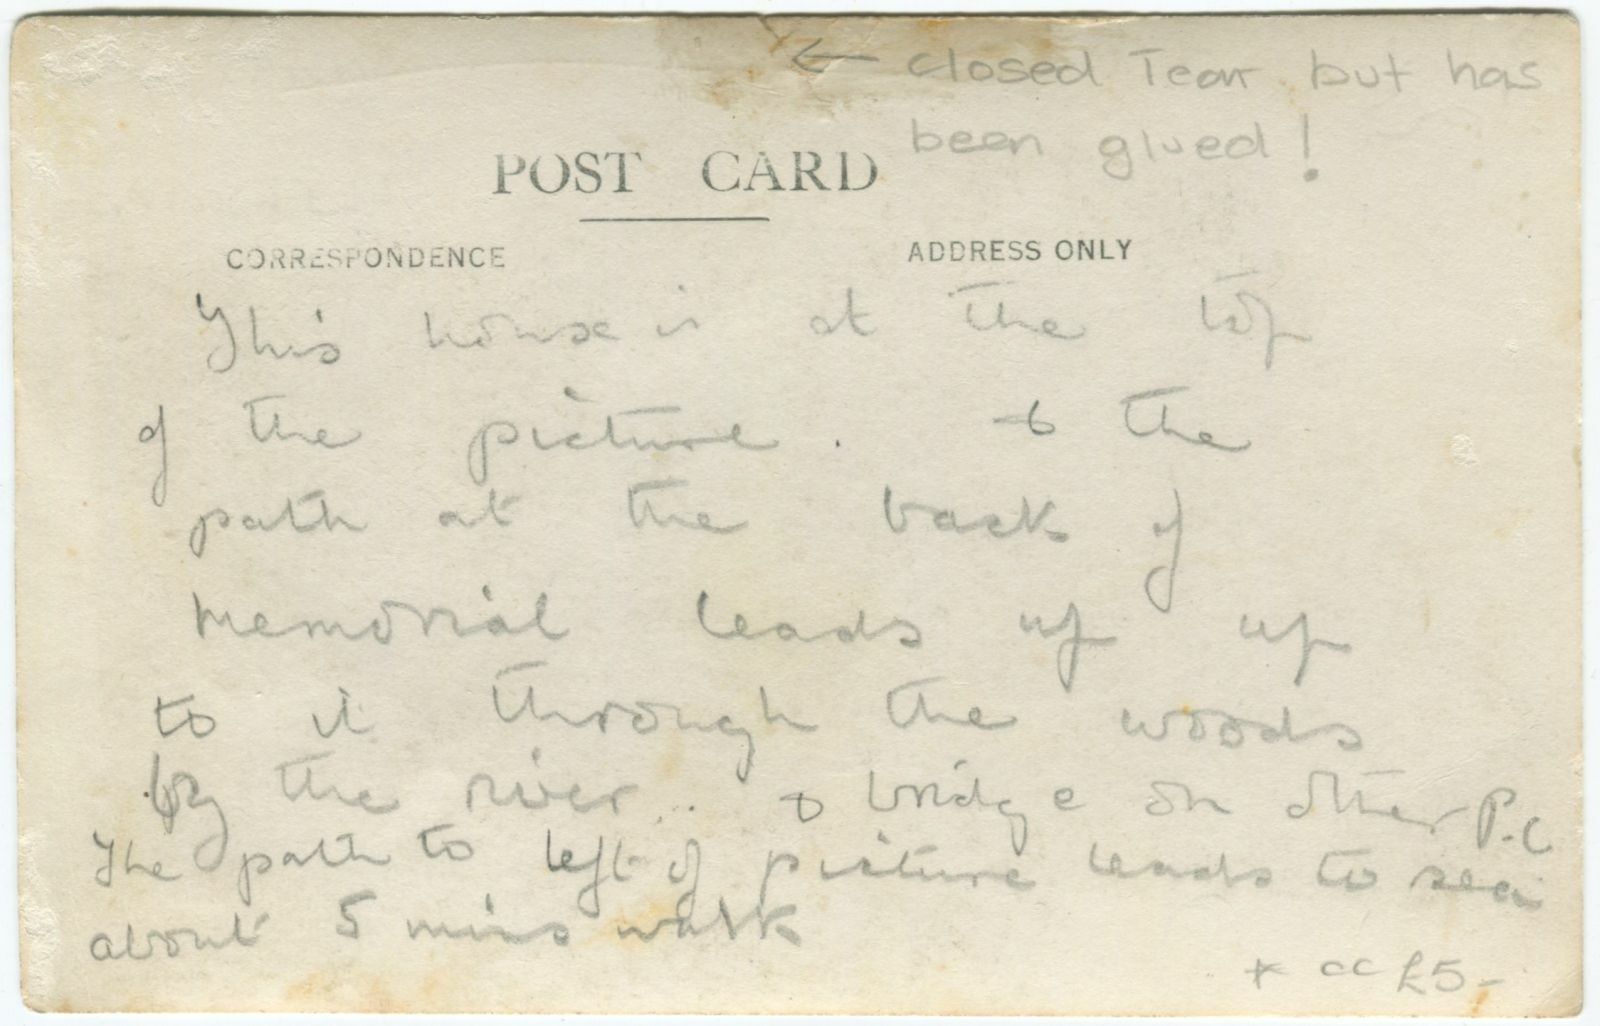 ← closed Tear but has
been glued!
POST CARD
CORRESPONDENCE
ADDRESS ONLY
This house is at the top
of the picture. & the
path at the back of
memorial leads up up
to it through the woods
by the river.. & bridge on other P.C
The path to left of picture leads to sea
about 5 mins walk
* CC £5-